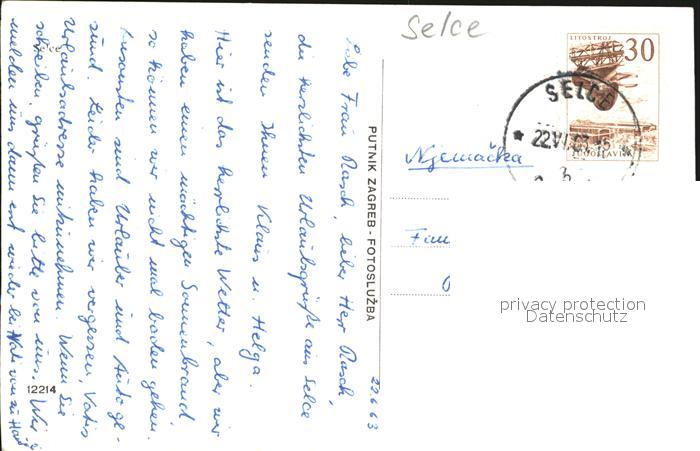 Selce
LITOSTROJ
30
JUGOSLAVIJA
SELCE
22.VI.63
Njemačka
privacy protection
Datenschutz
PUTNIK ZAGREB - FOTOSLUŽBA
22.6.63
Liebe Frau Rasch, lieber Herr Rasch,
die herzlichsten Urlaubsgrüße aus Selce
senden Ihnen Klaus u. Helga.
Hier ist das herrlichste Wetter, aber wir
haben einen mächtigen Sonnenbrand,
so können wir nicht mal baden gehen.
Ansonsten sind Urlauber und Auto ge-
sund. Leider haben wir vergessen, Vatis
Urlaubsadresse mitzunehmen. Wenn Sie
schreiben, grüßen Sie bitte von uns. Wir
melden uns dann erst wieder bei Vati von zu Haus
Selce
12214